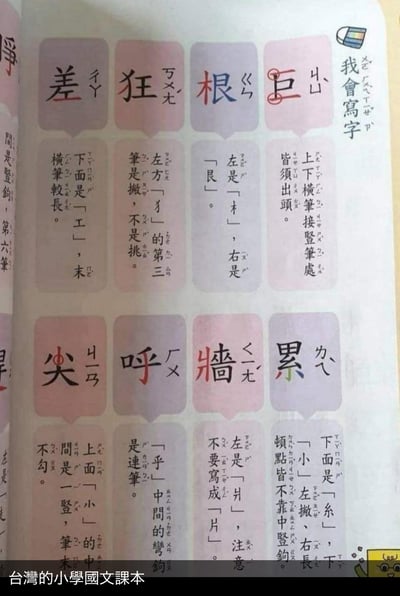 我會寫字
巨 ㄐㄩˋ
上下橫筆接豎筆處
皆須出頭。
根 ㄍㄣ
左是「木」，右是
「艮」。
狂 ㄎㄨㄤˊ
左方「犭」的第三
筆是撇，不是挑。
差 ㄔㄚ
下面是「工」，末
橫筆較長。
累 ㄌㄟˋ
下面是「糸」，下
「小」左撇、右長
頓點皆不靠中豎鉤。
牆 ㄑㄧㄤˊ
左是「爿」，注意
不要寫成「片」。
呼 ㄏㄨ
「乎」中間的彎鉤
是連筆。
尖 ㄐㄧㄢ
上面「小」的中
間是一豎，筆末
不勾。
間是豎鉤，第六筆
台灣的小學國文課本